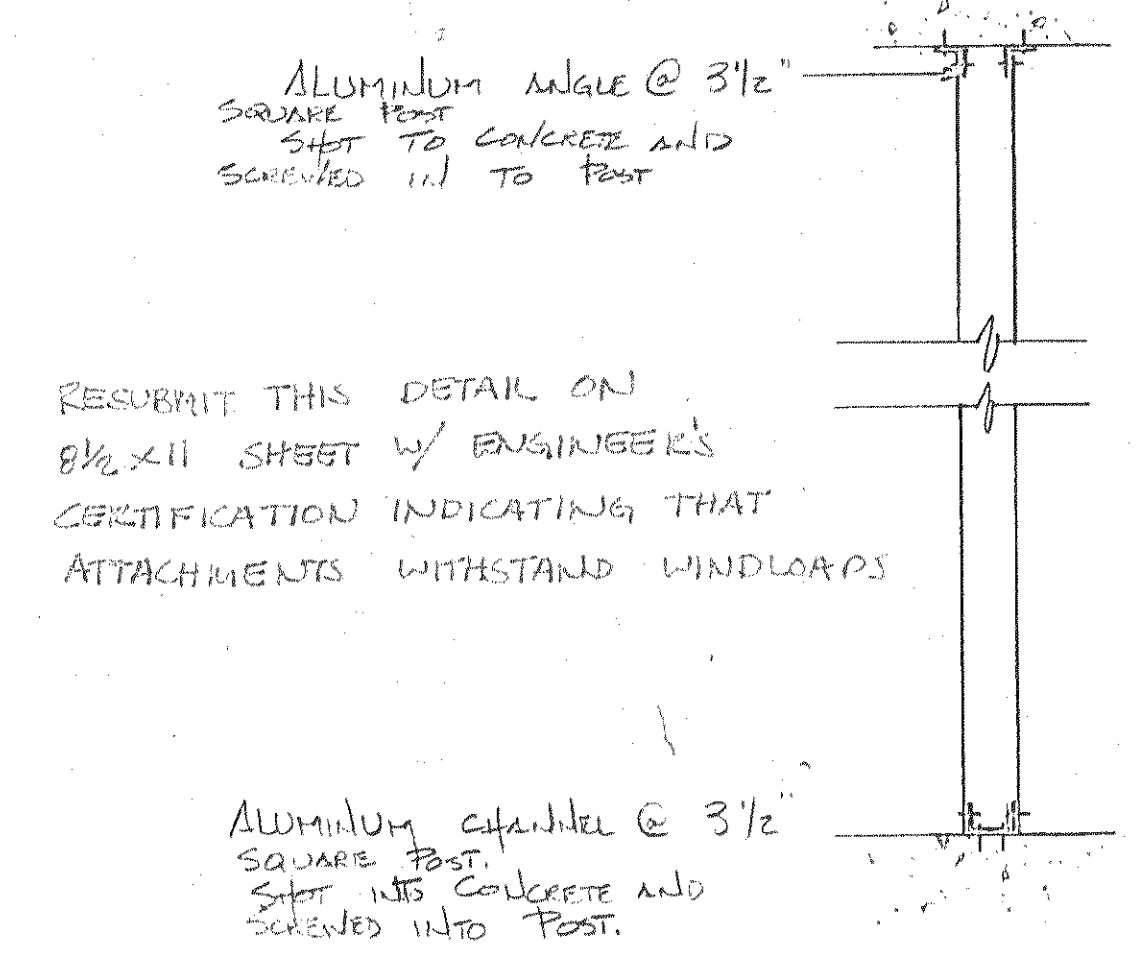 ALUMINUM ANGLE @ 3 1/2"
SQUARE POST
SHOT TO CONCRETE AND
SCREWED IN TO POST
RESUBMIT THIS DETAIL ON
8 1/2 x 11 SHEET W/ ENGINEER'S
CERTIFICATION INDICATING THAT
ATTACHMENTS WITHSTAND WINDLOADS
ALUMINUM CHANNEL @ 3 1/2"
SQUARE POST.
SHOT INTO CONCRETE AND
SCREWED INTO POST.